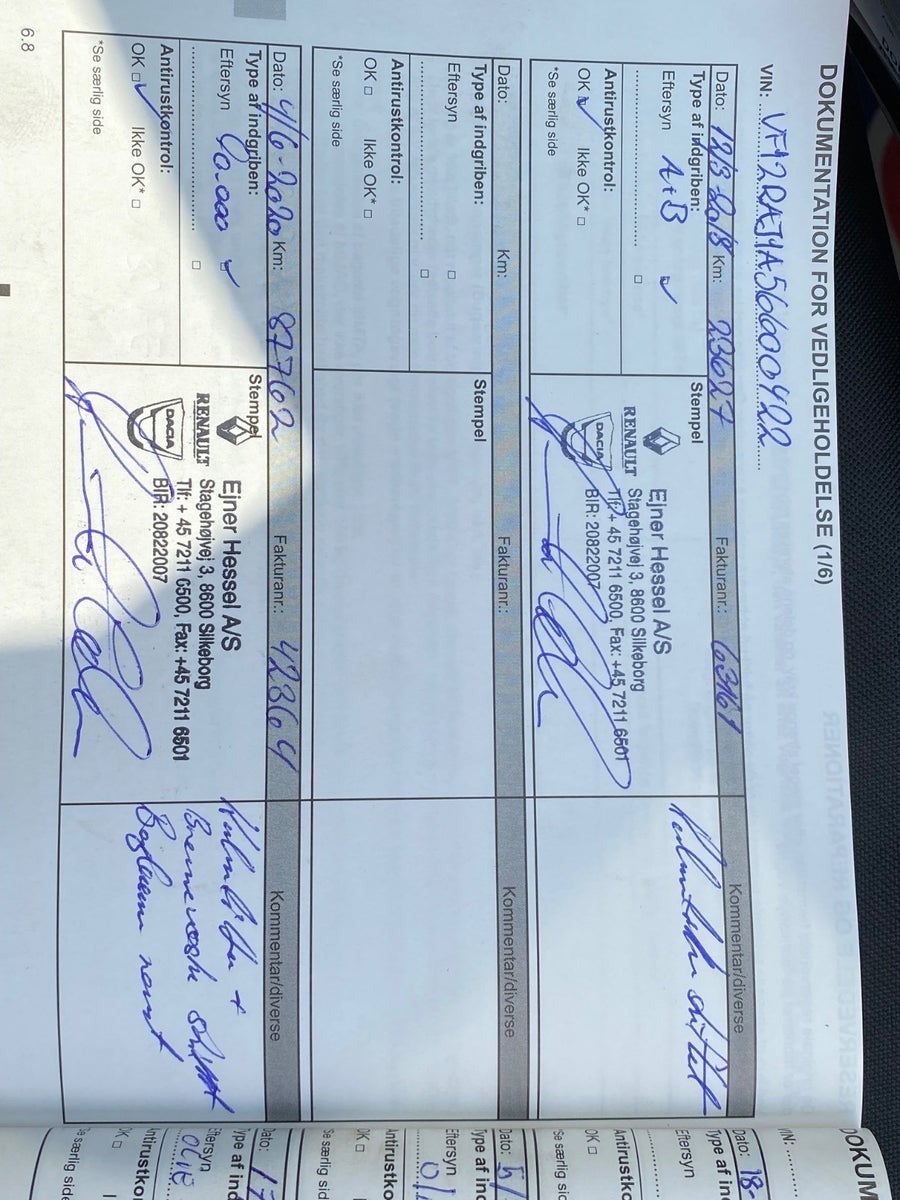 DOKUMENTATION FOR VEDLIGEHOLDELSE (1/6)
VIN: VF12RAJ1A56600422
Dato: 12/3-2018 Km: 23627 Fakturanr.: 63161 Kommentar/diverse
Type af indgriben:
Eftersyn A+B
Stempel
Antirustkontrol:
OK Ikke OK*
*Se særlig side
Ejner Hessel A/S
Stagehøjvej 3, 8600 Silkeborg
RENAULT
Tlf: + 45 7211 6500, Fax: +45 7211 6501
DACIA
BIR: 20822007
Dato: Km: Fakturanr.: Kommentar/diverse
Type af indgriben:
Eftersyn
Stempel
Antirustkontrol:
OK Ikke OK*
*Se særlig side
Dato: 4/6-2020 Km: 87762 Fakturanr.: 42364 Kommentar/diverse
Type af indgriben:
Eftersyn 90.000
Stempel
Antirustkontrol:
OK Ikke OK*
*Se særlig side
Ejner Hessel A/S
Stagehøjvej 3, 8600 Silkeborg
RENAULT
Tlf: + 45 7211 6500, Fax: +45 7211 6501
DACIA
BIR: 20822007
Kabinefilter +
Bremsevæske skiftet
6.8
DOKUM
VIN:
Dato: 18-
Type af in
Eftersyn
Antirustko
OK
*Se særlig sid
Dato: 5/
Type af inc
Eftersyn
Antirustko
OK
Se særlig sid
Dato: 17
Type af ind
Eftersyn
OLIE
Antirustkon
OK
Se særlig side